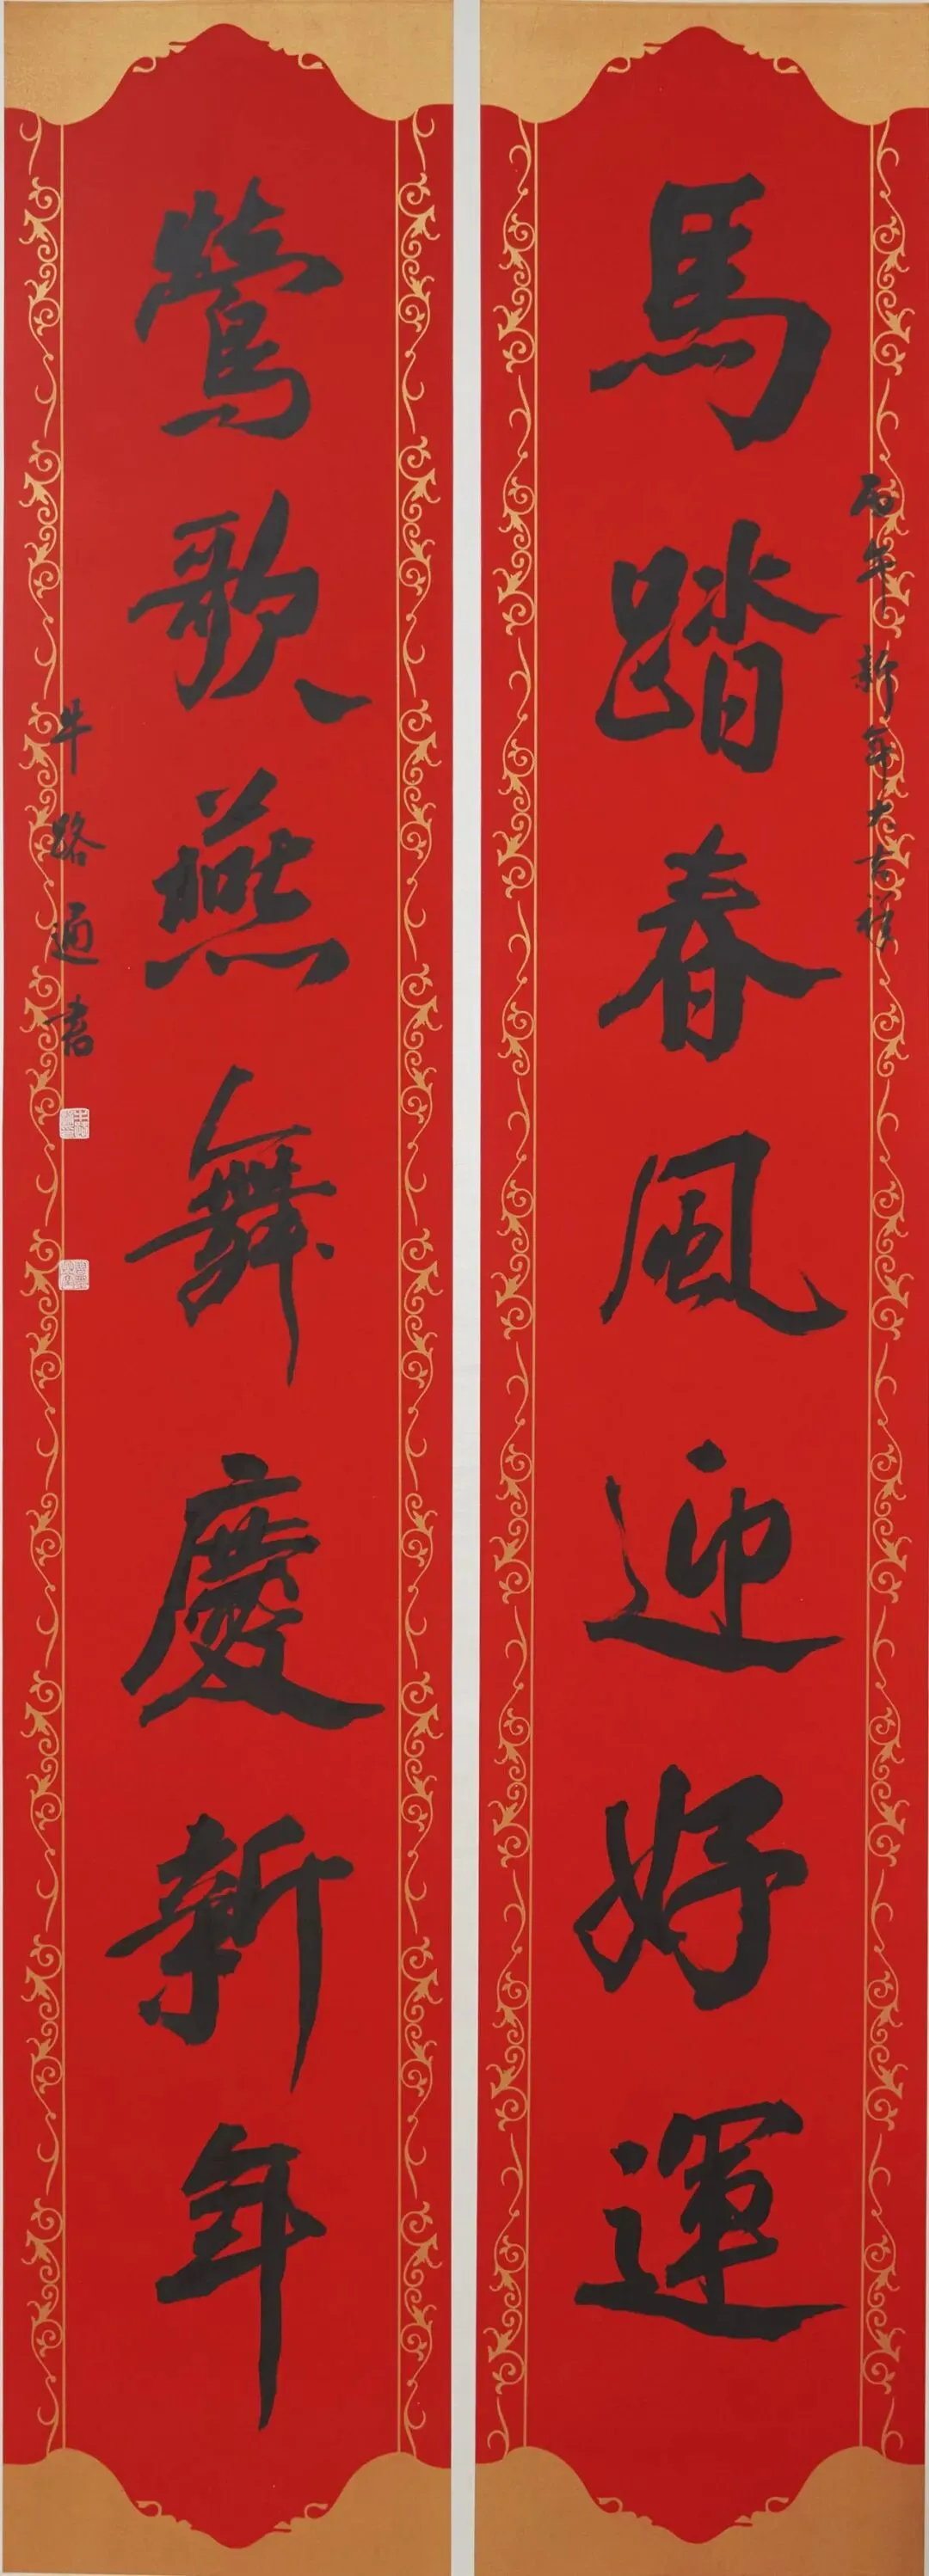 丙午新年大吉祥
馬踏春風迎好運
鶯歌燕舞慶新年
牛路通書